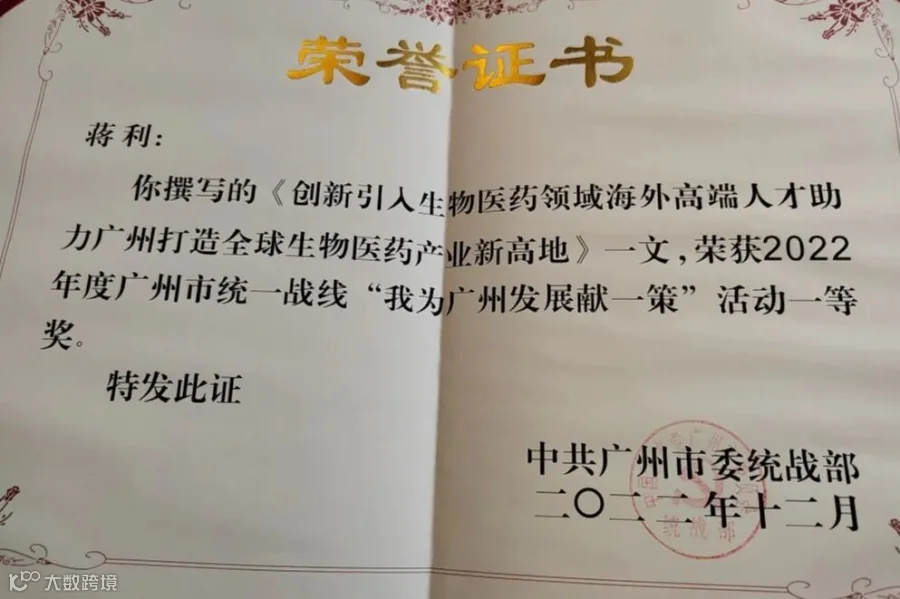 荣誉证书
蒋利：
你撰写的《创新引入生物医药领域海外高端人才助
力广州打造全球生物医药产业新高地》一文，荣获2022
年度广州市统一战线“我为广州发展献一策”活动一等
奖。
特发此证
中共广州市委统战部
二〇二二年十二月
统战部
大数跨境